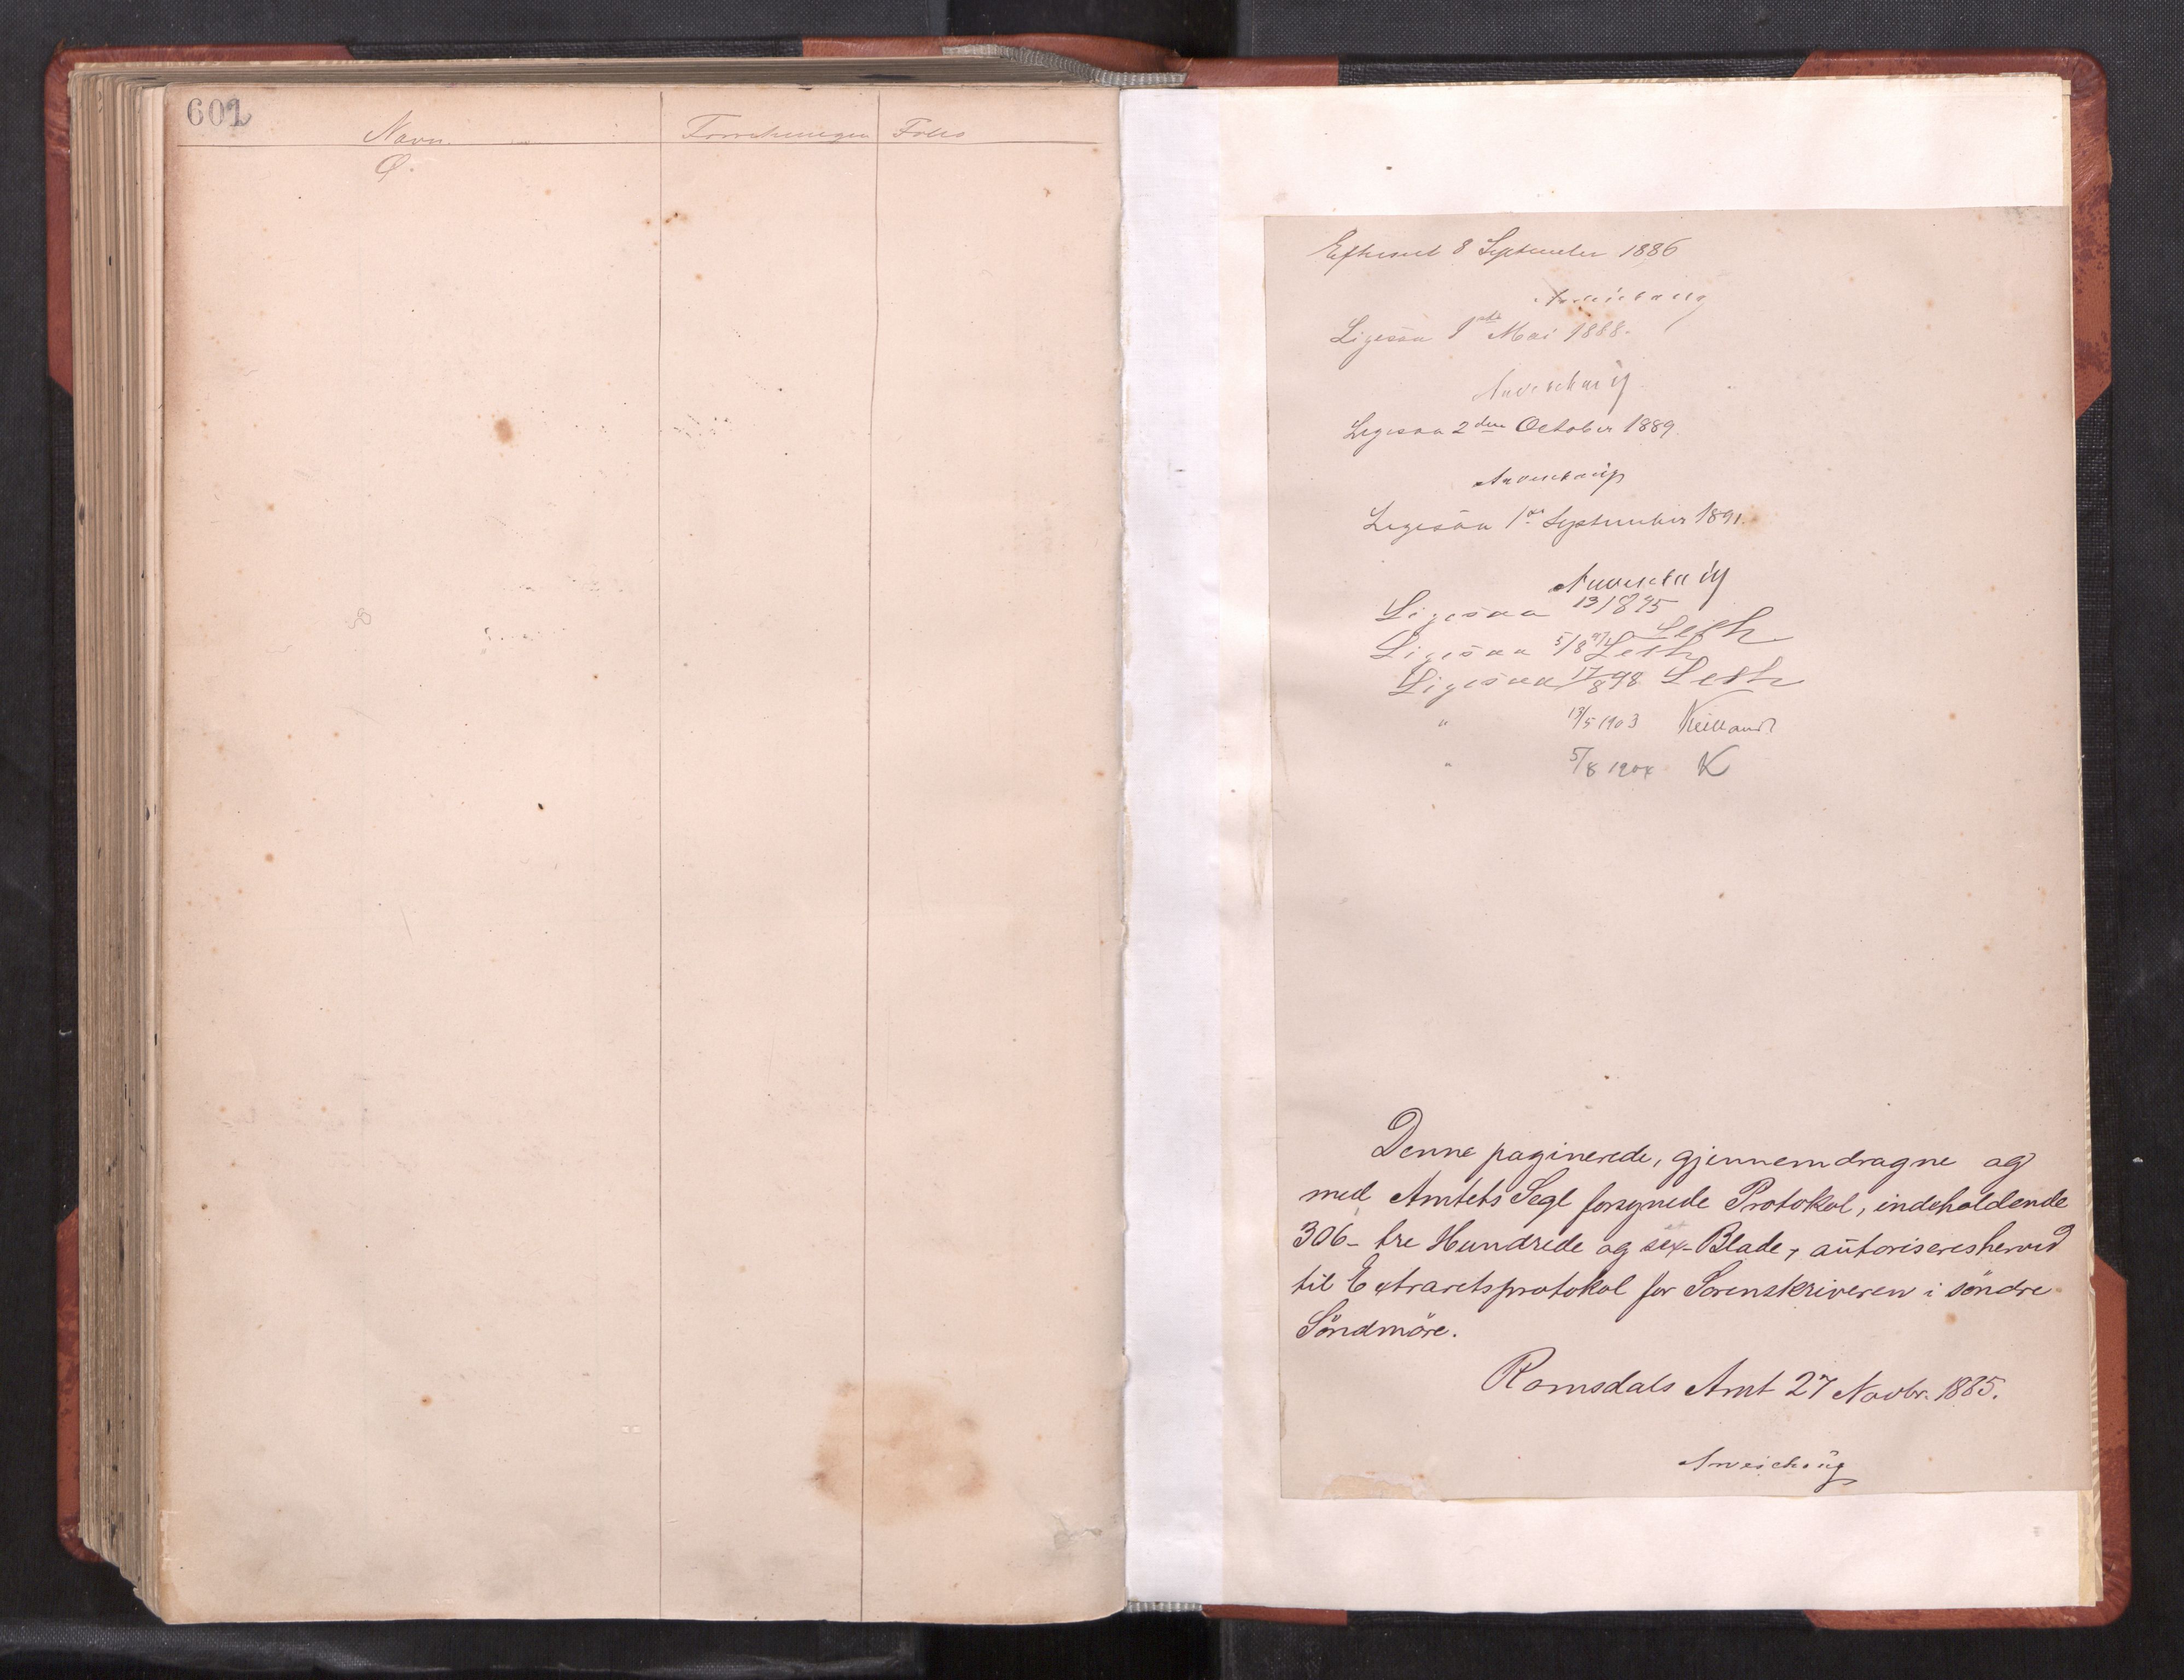 602
Navn. Forretningen Folio
Ø.
Efterseet 8 September 1886
Ligesaa 1ste Mai 1888.
Ligesaa 2den October 1889.
Ligesaa 1ste September 1891.
Ligesaa 13/8 95
Leth
Ligesaa 5/8 97 Leth
Ligesaa 17/8 98 Leth
" 13/5 1903 Kielland
" 5/8 1904 K
Denne paginerede, gjennemdragne og
med Amtets Segl forsynede Protokol, indeholdende
306- tre Hundrede og sex- Blade, autoriseres herved
til Extraretsprotokol for Sorenskriveren i söndre
Söndmöre.
Romsdals Amt 27 Novbr. 1885.